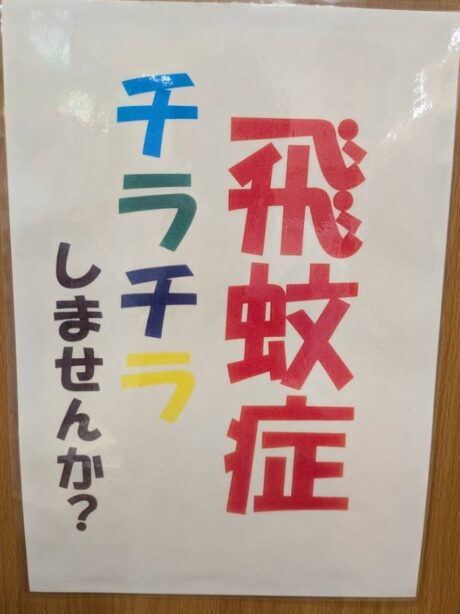 飛蚊症
チラチラ
しませんか?